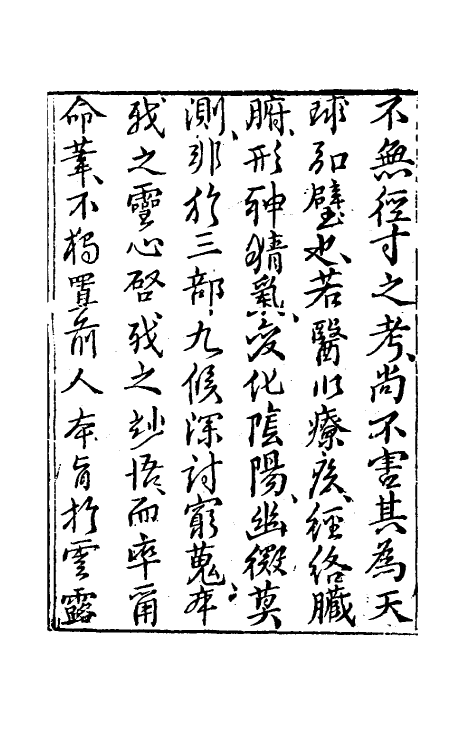 不無徑寸之考尚不害其為天
球弘璧也若醫以療疾經絡臟
腑形神精氣變化陰陽幽微莫
測非於三部九候深討窮蒐本
我之靈心啓我之玅悟而率爾
命葦不猶置前人本旨於雲霧